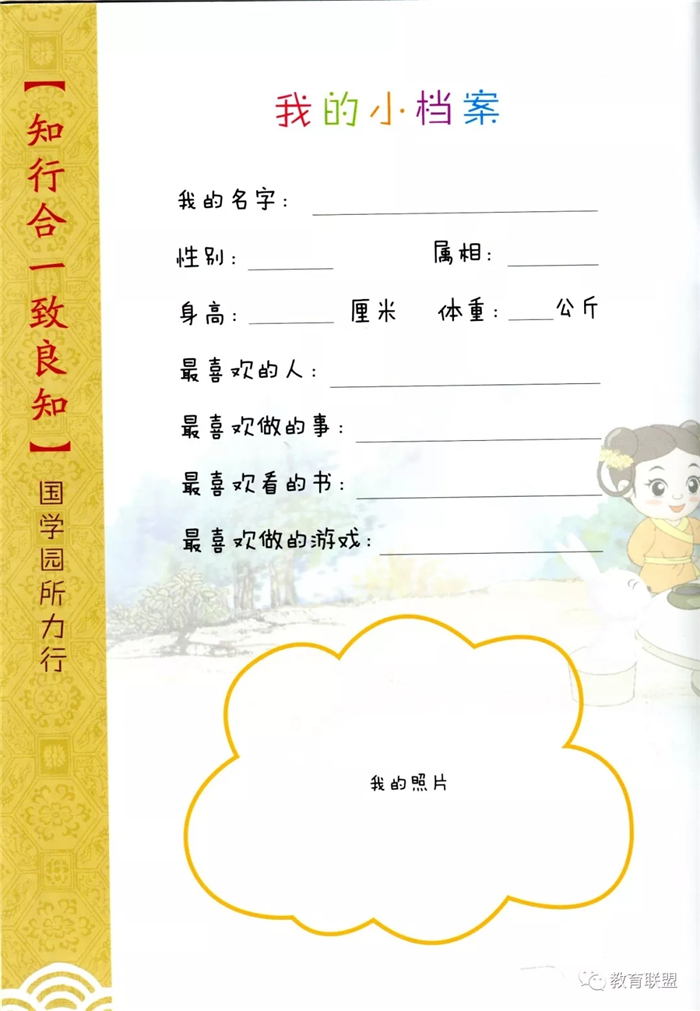 【知行合一致良知】
国学园所力行
我的小档案
我的名字：
性别： 属相：
身高： 厘米 体重： 公斤
最喜欢的人：
最喜欢做的事：
最喜欢看的书：
最喜欢做的游戏：
我的照片
教育联盟